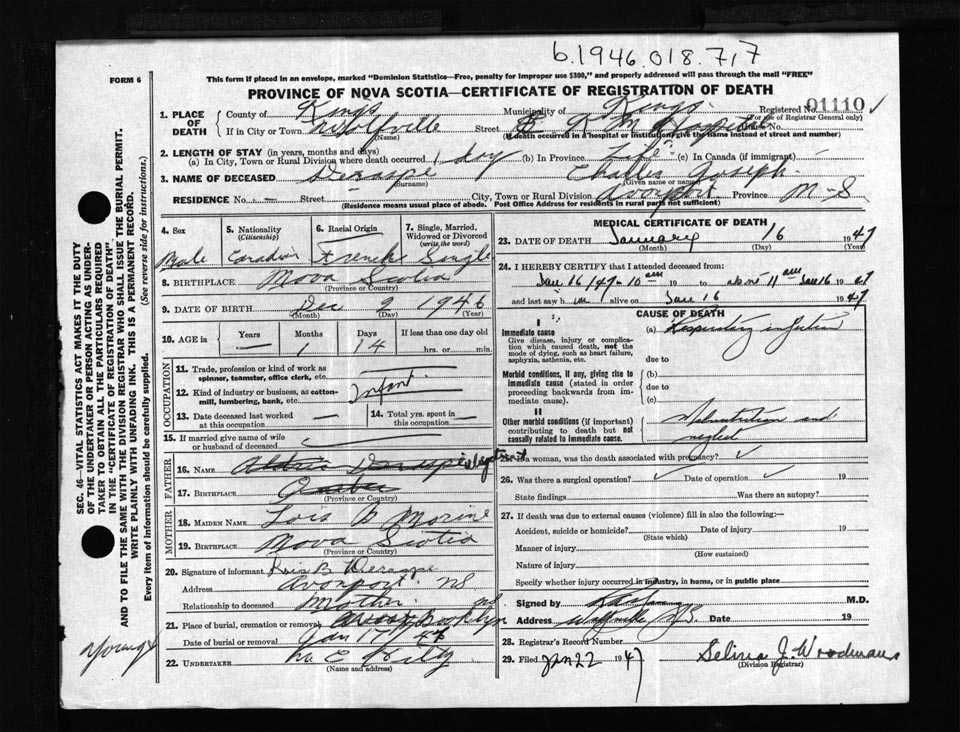 b.1946.018.717
FORM 6
This form if placed in an envelope, marked "Dominion Statistics—Free, penalty for improper use $300," and properly addressed will pass through the mail "FREE"
PROVINCE OF NOVA SCOTIA—CERTIFICATE OF REGISTRATION OF DEATH
1. PLACE OF DEATH County of Kings Municipality of Kings Registered No. 01110
(For use of Registrar General only)
If in City or Town Wolfville Street Hospital No.
(Name) (If death occurred in a hospital or institution, give the name instead of street and number)
2. LENGTH OF STAY (in years, months and days)
(a) In City, Town or Rural Division where death occurred 1 day (b) In Province Life (c) In Canada (if immigrant)
3. NAME OF DECEASED Deraspe Charles Joseph
(Surname) (Given name or names)
RESIDENCE No. — Street City, Town or Rural Division Avonport Province N-S
(Residence means usual place of abode. Post Office Address for residents in rural parts not sufficient)
4. Sex 5. Nationality (Citizenship) 6. Racial Origin 7. Single, Married, Widowed or Divorced (write the word)
Male Canadian French Single
8. BIRTHPLACE Nova Scotia
(Province or Country)
9. DATE OF BIRTH Dec 2 1946
(Month) (Day) (Year)
10. AGE in Years Months Days If less than one day old
— 1 14 hrs. or min.
OCCUPATION
11. Trade, profession or kind of work as spinner, teamster, office clerk, etc.
12. Kind of industry or business, as cotton-mill, lumbering, bank, etc. Infant
13. Date deceased last worked at this occupation — 14. Total yrs. spent in this occupation —
15. If married give name of wife or husband of deceased
FATHER
16. NAME Deraspe
17. BIRTHPLACE Quebec
(Province or Country)
MOTHER
18. MAIDEN NAME Lois B Morine
19. BIRTHPLACE Nova Scotia
(Province or Country)
20. Signature of informant Lois B Deraspe
Address Avonport NS
Relationship to deceased Mother
21. Place of burial, cremation or removal Brooklyn
Date of burial or removal Jan 17 1947
22. UNDERTAKER W. E.
(Name and address)
MEDICAL CERTIFICATE OF DEATH
23. DATE OF DEATH January 16 1947
(Month) (Day) (Year)
24. I HEREBY CERTIFY that I attended deceased from:
Jan 16/47 - 10 am 19 to about 11 am Jan 16 1947
and last saw h im alive on Jan 16 1947
CAUSE OF DEATH
I
Immediate cause (a) Respiratory infection
Give disease, injury or complication, which caused death, not the mode of dying, such as heart failure, asphyxia, asthenia, etc.
due to
Morbid conditions, if any, giving rise to immediate cause (stated in order proceeding backwards from immediate cause).
(b)
due to
(c)
II
Other morbid conditions (if important) contributing to death but not causally related to immediate cause.
Malnutrition and neglect
25. If a woman, was the death associated with pregnancy?
26. Was there a surgical operation? Date of operation 19
State findings Was there an autopsy?
27. If death was due to external causes (violence) fill in also the following:—
Accident, suicide or homicide? Date of injury 19
(State which)
Manner of injury
(How sustained)
Nature of injury
Specify whether injury occurred in industry, in home, or in public place
Signed by M.D.
Address Wolfville N.S. Date 19
28. Registrar's Record Number
29. Filed Jan 22 1947 Selina J. Woodman
(Division Registrar)
SEC. 46—VITAL STATISTICS ACT MAKES IT THE DUTY OF THE UNDERTAKER OR PERSON ACTING AS UNDERTAKER TO OBTAIN ALL THE PARTICULARS REQUIRED IN THE "CERTIFICATE OF REGISTRATION OF DEATH" AND TO FILE THE SAME WITH THE DIVISION REGISTRAR WHO SHALL ISSUE THE BURIAL PERMIT.
WRITE PLAINLY WITH UNFADING INK. THIS IS A PERMANENT RECORD.
Every item of information should be carefully supplied. (See reverse side for instructions.)
Young